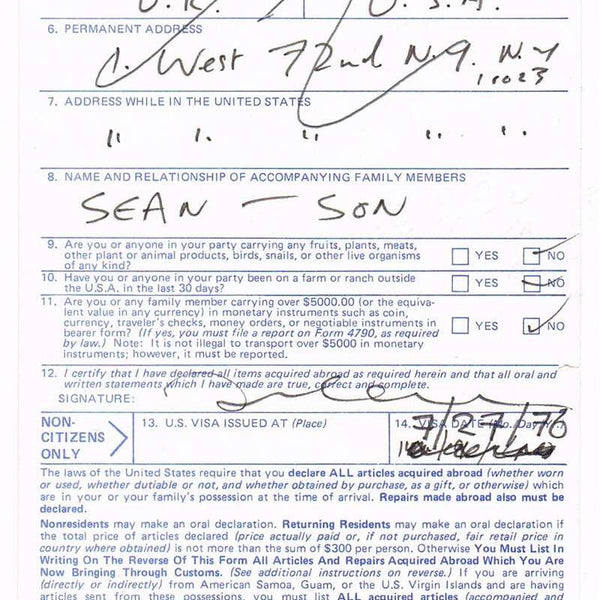 U.K. / U.S.A.
6. PERMANENT ADDRESS
1. West 72nd N.Y. N.Y
10023
7. ADDRESS WHILE IN THE UNITED STATES
" " " " "
8. NAME AND RELATIONSHIP OF ACCOMPANYING FAMILY MEMBERS
SEAN — SON
9. Are you or anyone in your party carrying any fruits, plants, meats, other plant or animal products, birds, snails, or other live organisms of any kind? YES NO
10. Have you or anyone in your party been on a farm or ranch outside the U.S.A. in the last 30 days? YES NO
11. Are you or any family member carrying over $5000.00 (or the equiva-
lent value in any currency) in monetary instruments such as coin,
currency, traveler's checks, money orders, or negotiable instruments in
bearer form? (If yes, you must file a report on Form 4790, as required
by law.) Note: It is not illegal to transport over $5000 in monetary
instruments; however, it must be reported. YES NO
12. I certify that I have declared all items acquired abroad as required herein and that all oral and
written statements which I have made are true, correct and complete.
SIGNATURE:
NON-
CITIZENS
ONLY
13. U.S. VISA ISSUED AT (Place)
14. VISA DATE (Mo./Day/Yr.)
7/27/76
The laws of the United States require that you declare ALL articles acquired abroad (whether worn
or used, whether dutiable or not, and whether obtained by purchase, as a gift, or otherwise) which
are in your or your family's possession at the time of arrival. Repairs made abroad also must be
declared.
Nonresidents may make an oral declaration. Returning Residents may make an oral declaration if
the total price of articles declared (price actually paid or, if not purchased, fair retail price in
country where obtained) is not more than the sum of $300 per person. Otherwise You Must List In
Writing On The Reverse Of This Form All Articles And Repairs Acquired Abroad Which You Are
Now Bringing Through Customs. (See additional instructions on reverse.) If you are arriving
(directly or indirectly) from American Samoa, Guam, or the U.S. Virgin Islands and are having
articles sent from these possessions, you must list ALL articles (accompanied and